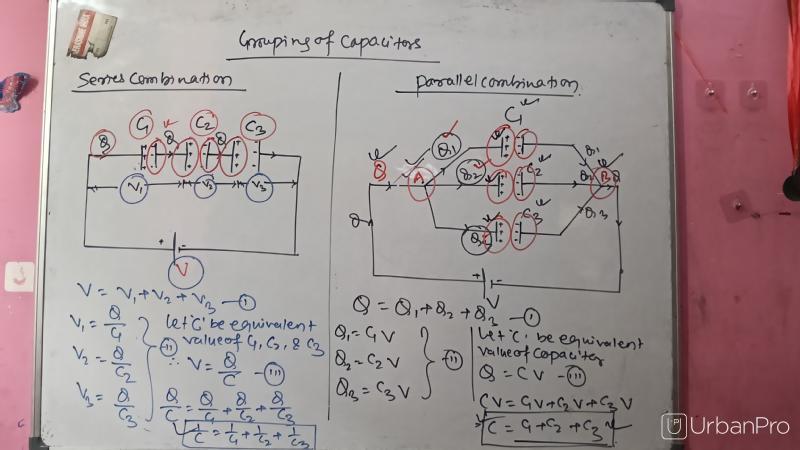 Grouping of Capacitors
Series Combination
C1 C2 C3
Q Q Q
V1 V2 V3
+ -
V
V = V1 + V2 + V3 — (i)
V1 = Q/C1
V2 = Q/C2
V3 = Q/C3
(ii)
Let 'C' be equivalent
value of C1, C2, & C3
∴ V = Q/C — (iii)
Q/C = Q/C1 + Q/C2 + Q/C3
1/C = 1/C1 + 1/C2 + 1/C3
Parallel combination
C1
Q1 Q1
Q A Q2 C2 Q2 B Q
Q C3 Q3
Q3
+ -
V
Q = Q1 + Q2 + Q3 — (i)
Q1 = C1 V
Q2 = C2 V
Q3 = C3 V
(ii)
Let 'C' be equivalent
value of capacitor
Q = CV — (iii)
CV = C1V + C2V + C3V
C = C1 + C2 + C3
UrbanPro